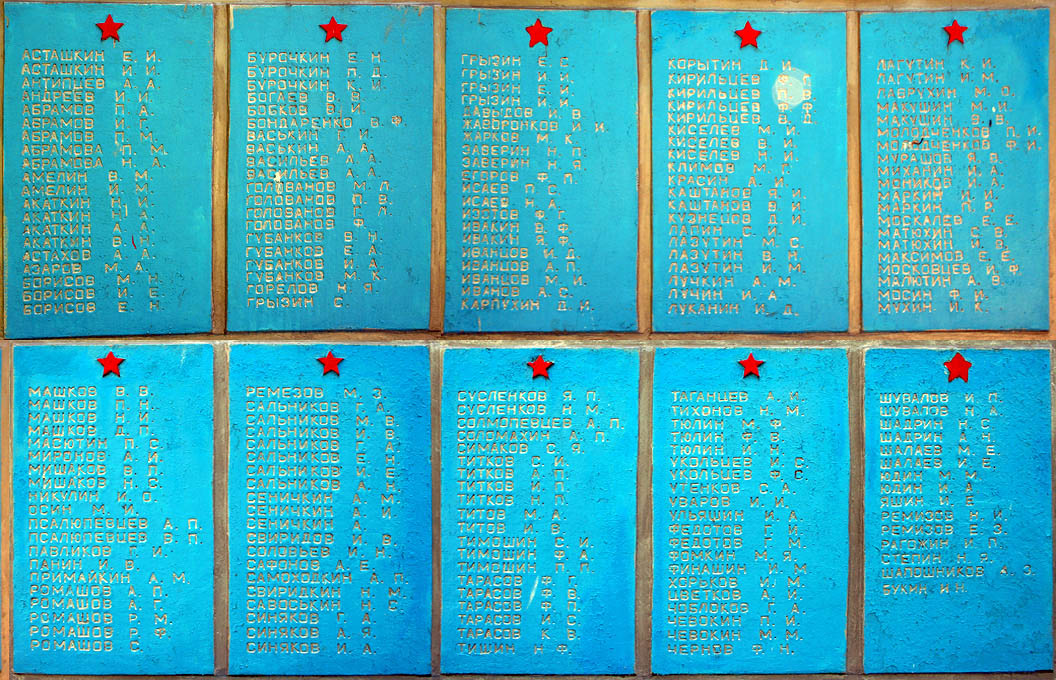 АСТАШКИН Е. И.
АСТАШКИН И. И.
АНТИПЦЕВ А. А.
АНДРЕЕВ И. И.
АБРАМОВ П. А.
АБРАМОВ И. Г.
АБРАМОВ П. М.
АБРАМОВА П. М.
АБРАМОВА Н. А.
АМЕЛИН В. М.
АМЕЛИН И. М.
АКАТКИН Н. И.
АКАТКИН Н. А.
АКАТКИН А. А.
АКАТКИН В. Н.
АСТАХОВ А. А.
АЗАРОВ М. А.
БОРИСОВ М. Н.
БОРИСОВ И. Е.
БОРИСОВ Е. Н.
БУРОЧКИН Е. Н.
БУРОЧКИН П. Д.
БУРОЧКИН К. И.
БОГАЕВ В. В.
БОБКОВ В. И.
БОНДАРЕНКО В. Ф.
ВАСЬКИН Т. И.
ВАСЬКИН А. А.
ВАСИЛЬЕВ А. А.
ВАСИЛЬЕВ А. А.
ГОЛОВАНОВ М. Л.
ГОЛОВАНОВ П. В.
ГОЛОВАНОВ С. П.
ГОЛОВАНОВ Ф.
ГУБАНКОВ В. Н.
ГУБАНКОВ Е. А.
ГУБАНКОВ И. А.
ГУБАНКОВ М. К.
ГОРЕЛОВ Н. Я.
ГРЫЗИН С.
ГРЫЗИН Е. С.
ГРЫЗИН И. И.
ГРЫЗИН Е. И.
ГРЫЗИН И. И.
ДАВЫДОВ И. В.
ЖАВОРОНКОВ И. И.
ЖАРКОВ М. К.
ЗАВЕРИН Н. П.
ЗАВЕРИН Н. Я.
ЕГОРОВ Ф. П.
ИСАЕВ П. С.
ИСАЕВ Н. А.
ИЗОТОВ Ф. Г.
ИВАКИН В. Ф.
ИВАКИН Я. Ф.
ИВАНЦОВ И. Д.
ИВАНЦОВ А. П.
ИВАНЦОВ М. И.
ИВАНОВ А. С.
КАРПУХИН Д. И.
КОРЫТИН Д. И.
КИРИЛЬЦЕВ
КИРИЛЬЦЕВ П. В.
КИРИЛЬЦЕВ Ф. Ф.
КИРИЛЬЦЕВ В. Д.
КИСЕЛЕВ М. И.
КИСЕЛЕВ В. И.
КИСЕЛЕВ Н. И.
КЛИМОВ М. Г.
КРАСИН А. И.
КАШТАНОВ Я. И.
КАШТАНОВ В. И.
КУЗНЕЦОВ Д. И.
ЛАПИН С. И.
ЛАЗУТИН М. С.
ЛАЗУТИН В. Н.
ЛАЗУТИН И. М.
ЛУЧКИН А. М.
ЛУЧИН И. А.
ЛУКАНИН И. Д.
ЛАГУТИН К. И.
ЛАГУТИН И. М.
ЛАБРУХИН М. О.
МАКУШИН М. И.
МАКУШИН В. В.
МОЛОДЧЕНКОВ П. И.
МОЛОДЧЕНКОВ Ф. И.
МУРАШОВ Я. В.
МИХАНИН И. А.
МОНИКОВ И. А.
МАРКИН Д. И.
МАРКИН П. Р.
МОСКАЛЕВ Е. Е.
МАТЮХИН С. В.
МАТЮХИН И. В.
МАКСИМОВ Е. Е.
МОСКОВЦЕВ И. Ф.
МАЛЮТИН А. В.
МОСИН Ф. И.
МУХИН И. К.
МАШКОВ В. В.
МАШКОВ П. Н.
МАШКОВ Н. И.
МАШКОВ Д. Г.
МАСЮТИН П. С.
МИРОНОВ А. И.
МИШАКОВ В. П.
МИШАКОВ Н. С.
НИКУЛИН И. О.
ОСИН М. И.
ПСАЛЮПЕВЦЕВ А. П.
ПСАЛЮПЕВЦЕВ В. П.
ПАВЛИКОВ Г. И.
ПАНИН И. В.
ПРИМАЙКИН А. М.
РОМАШОВ А. П.
РОМАШОВ А. Г.
РОМАШОВ Р. М.
РОМАШОВ Р. Ф.
РОМАШОВ С.
РЕМЕЗОВ М. З.
САЛЬНИКОВ Г. А.
САЛЬНИКОВ М. В.
САЛЬНИКОВ И. В.
САЛЬНИКОВ Г. А.
САЛЬНИКОВ Е. Н.
САЛЬНИКОВ И. Е.
САЛЬНИКОВ А. Н.
СЕНИЧКИН А. М.
СЕНИЧКИН А. И.
СЕНИЧКИН А.
СВИРИДОВ И. В.
СОЛОВЬЕВ И. Н.
САФОНОВ А. Е.
САМОХОДКИН А. П.
СВИРИДКИН Н. М.
САВОСЬКИН Н. С.
СИНЯКОВ Г. А.
СИНЯКОВ А. Я.
СИНЯКОВ И. А.
СУСЛЕНКОВ Я. П.
СУСЛЕНКОВ Н. М.
СОЛМОПЕВЦЕВ А. П.
СОЛОМАХИН А. П.
СИМАКОВ С. Я.
ТИТКОВ С. И.
ТИТКОВ А. П.
ТИТКОВ Н. П.
ТИТКОВ Н. П.
ТИТОВ М. А.
ТИТОВ И. В.
ТИМОШИН С. И.
ТИМОШИН Ф. А.
ТИМОШИН П. П.
ТАРАСОВ Ф. Г.
ТАРАСОВ Ф. В.
ТАРАСОВ Ф. П.
ТАРАСОВ И. С.
ТАРАСОВ К. В.
ТИШИН Н. Ф.
ТАГАНЦЕВ А. И.
ТИХОНОВ Н. М.
ТЮЛИН М. Ф.
ТЮЛИН Ф. В.
ТЮЛИН И. И.
УКОЛЬЦЕВ И. С.
УКОЛЬЦЕВ Ф. С.
УТЕНКОВ С. А.
УВАРОВ И. И.
УЛЬЯШИН И. А.
ФЕДОТОВ Г. И.
ФЕДОТОВ Г. М.
ФОМКИН М. Я.
ФИНАШИН И. М.
ХОРЬКОВ И. М.
ЦВЕТКОВ А. И.
ЧОБЛОКОВ Г. А.
ЧЕВОКИН П. И.
ЧЕВОКИН М. М.
ЧЕРНОВ Ф. Н.
ШУВАЛОВ И. П.
ШУВАЛОВ Н. А.
ШАДРИН Н. С.
ШАДРИН А. Н.
ШАЛАЕВ М. Е.
ШАЛАЕВ И. Е.
ЮДИН М. И.
ЮДИН И. А.
ЯШИН И. Е.
РЕМИЗОВ Н. И.
РЕМИЗОВ Е. З.
РАГОЖИН И. П.
СТЕПИН Н. Я.
ШАПОШНИКОВ А. З.
БУКИН И.Н.